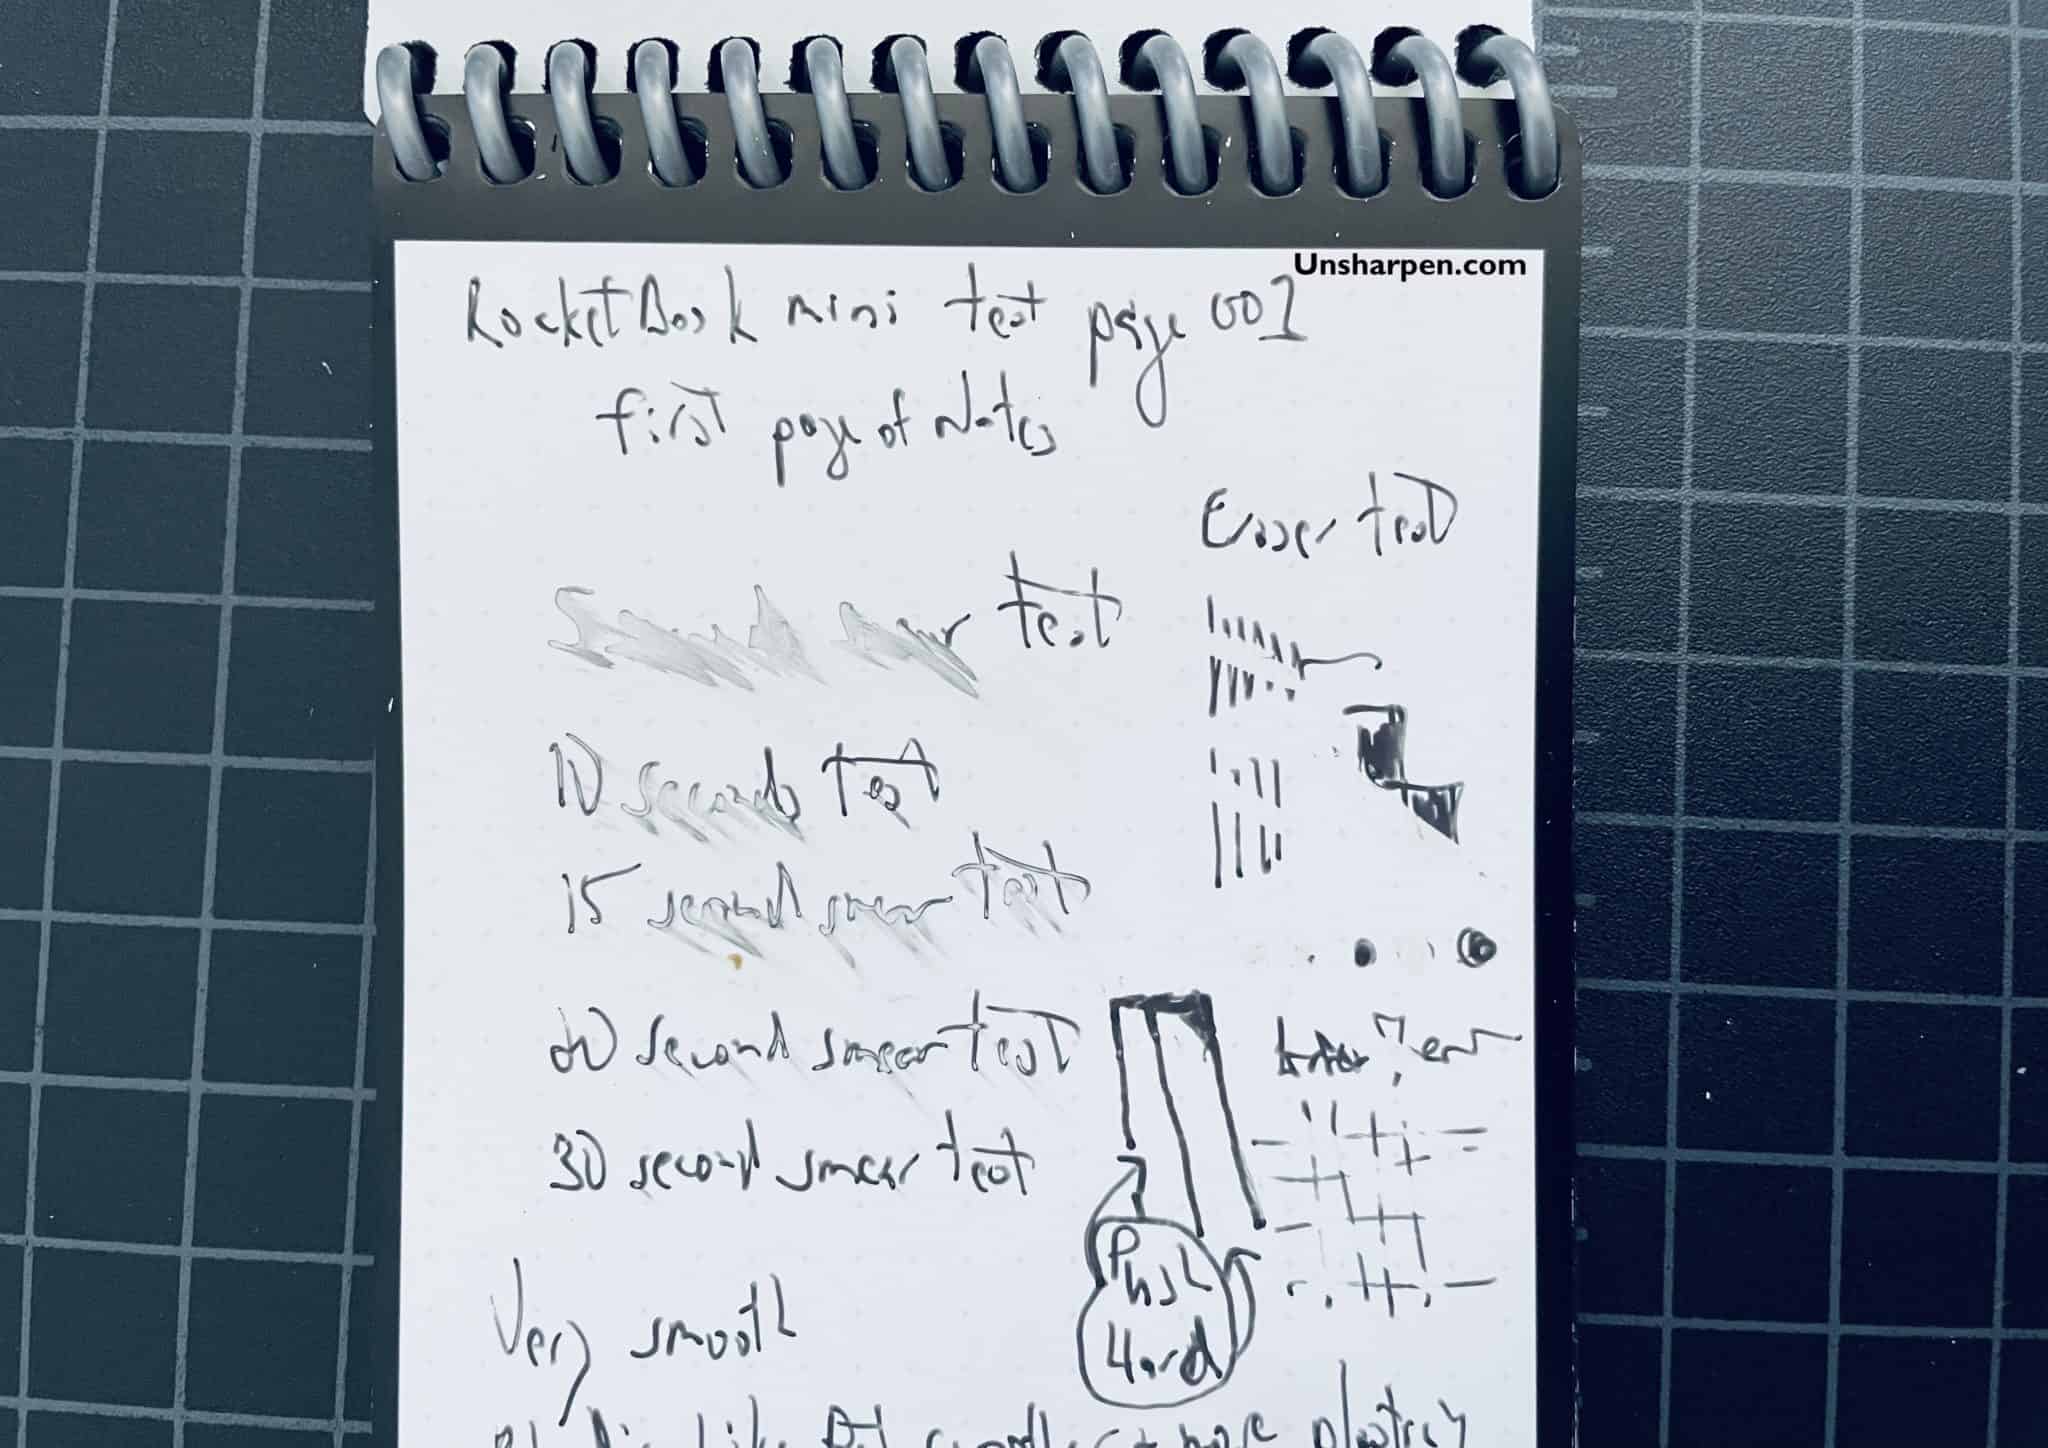 Unsharpen.com
RocketBook mini test page 001
first page of Notes
Eraser test
5 second smear test
10 seconds test
15 second smear test
20 second smear test
30 second smear test
Push
Hard
Very smooth